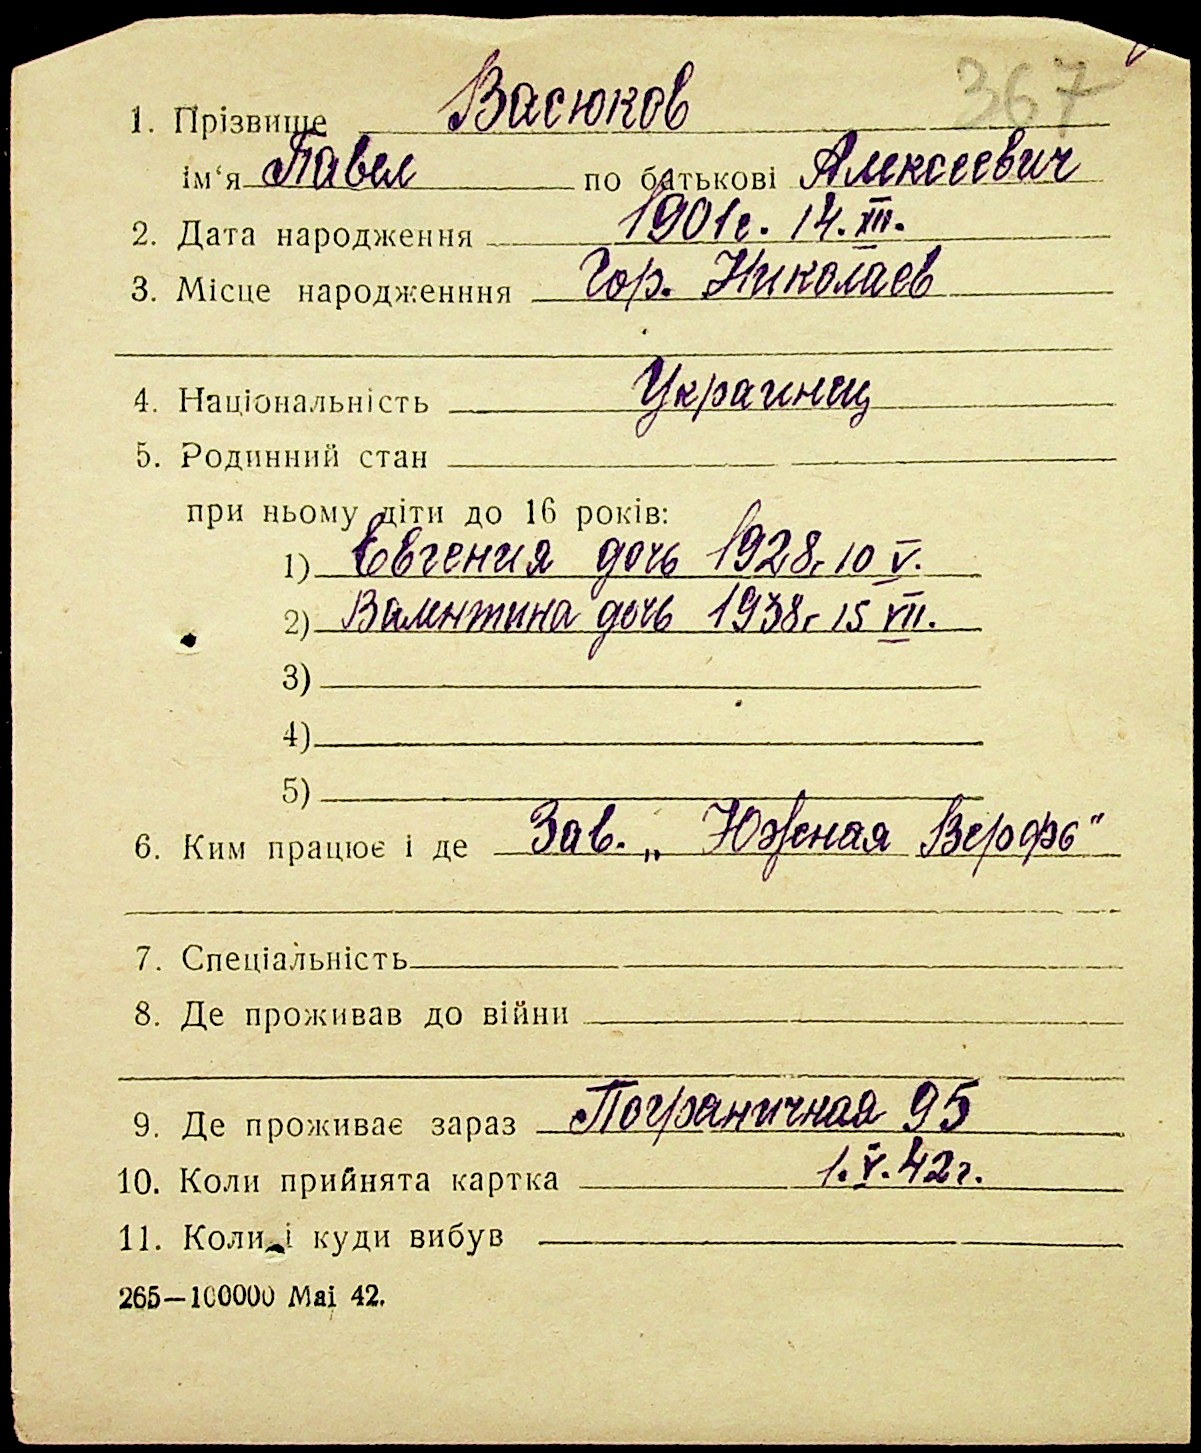 367
1. Прізвище Васюков
ім‘я Павел по батькові Алексеевич
2. Дата народження 1901г. 14.XII.
3. Місце народженння Гор. Николаев
4. Національність Украинец
5. Родинний стан
при ньому діти до 16 років:
1) Евгения дочь 1928г 10 V.
2) Валентина дочь 1938г 15 VII.
3)
4)
5)
6. Ким працює і де Зав. „Южная Верфь"
7. Спеціальність
8. Де проживав до війни
9. Де проживає зараз Пограничная 95
10. Коли прийнята картка 1.V.42г.
11. Коли і куди вибув
265—100000 Mai 42.